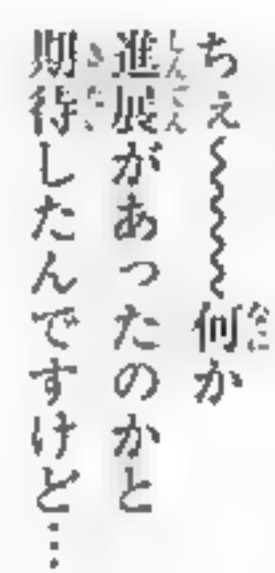 ちぇ〜〜〜何か
進展があったのかと
期待したんですけど…